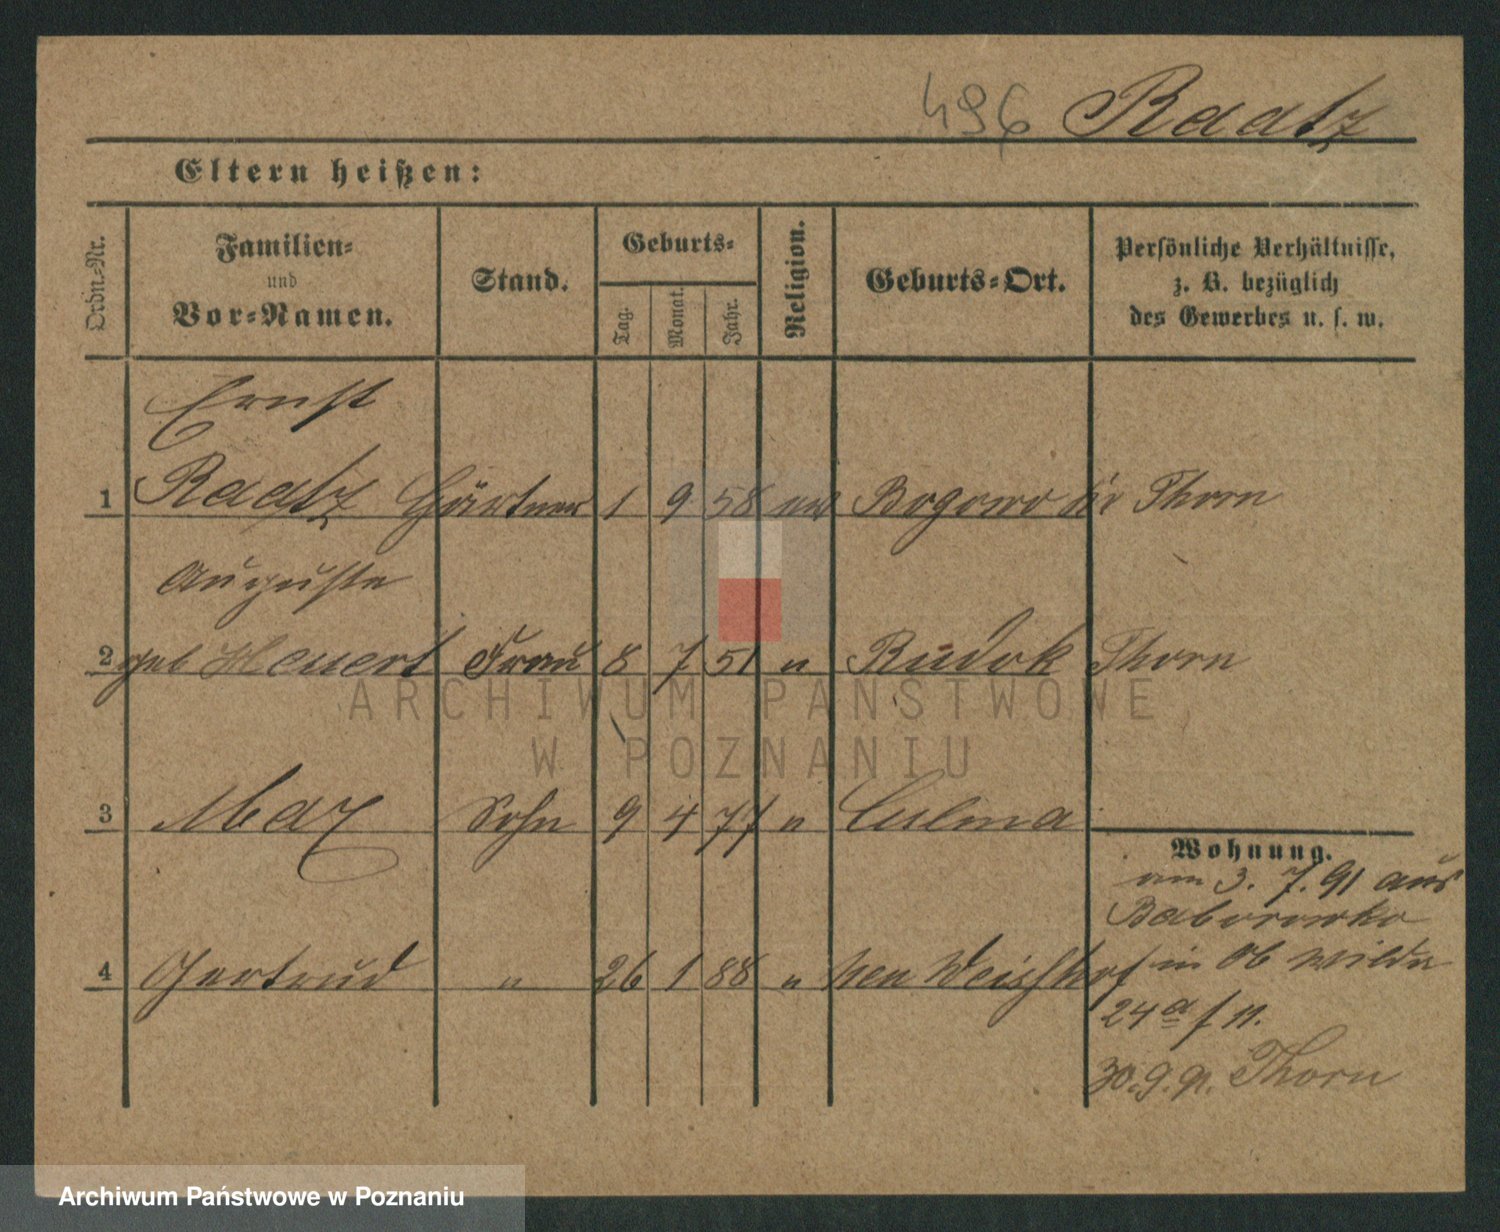 496 Raatz
Eltern heißen:
Ordn=Nr.
Familien=
und
Vor=Namen.
Stand.
Geburts=
Tag.
Monat.
Jahr.
Religion.
Geburts=Ort.
Persönliche Verhältnisse,
z. B. bezüglich
des Gewerbes u. s. w.
Ernst
1 Raatz Gärtner 1 9 58 ev Bogowo Kr Thorn
Auguste
2 geb Heuert Frau 8 7 51 " Rudok Thorn
3 Max Sohn 9 4 77 " Culma
Wohnung.
am 3. 7. 91 aus
Baborowko
4 Gertrud " 26 1 88 " Neu Weishof in Ob Wilda
24a
30.9.91. Thorn
ARCHIWUM PAŃSTWOWE
W POZNANIU
Archiwum Państwowe w Poznaniu